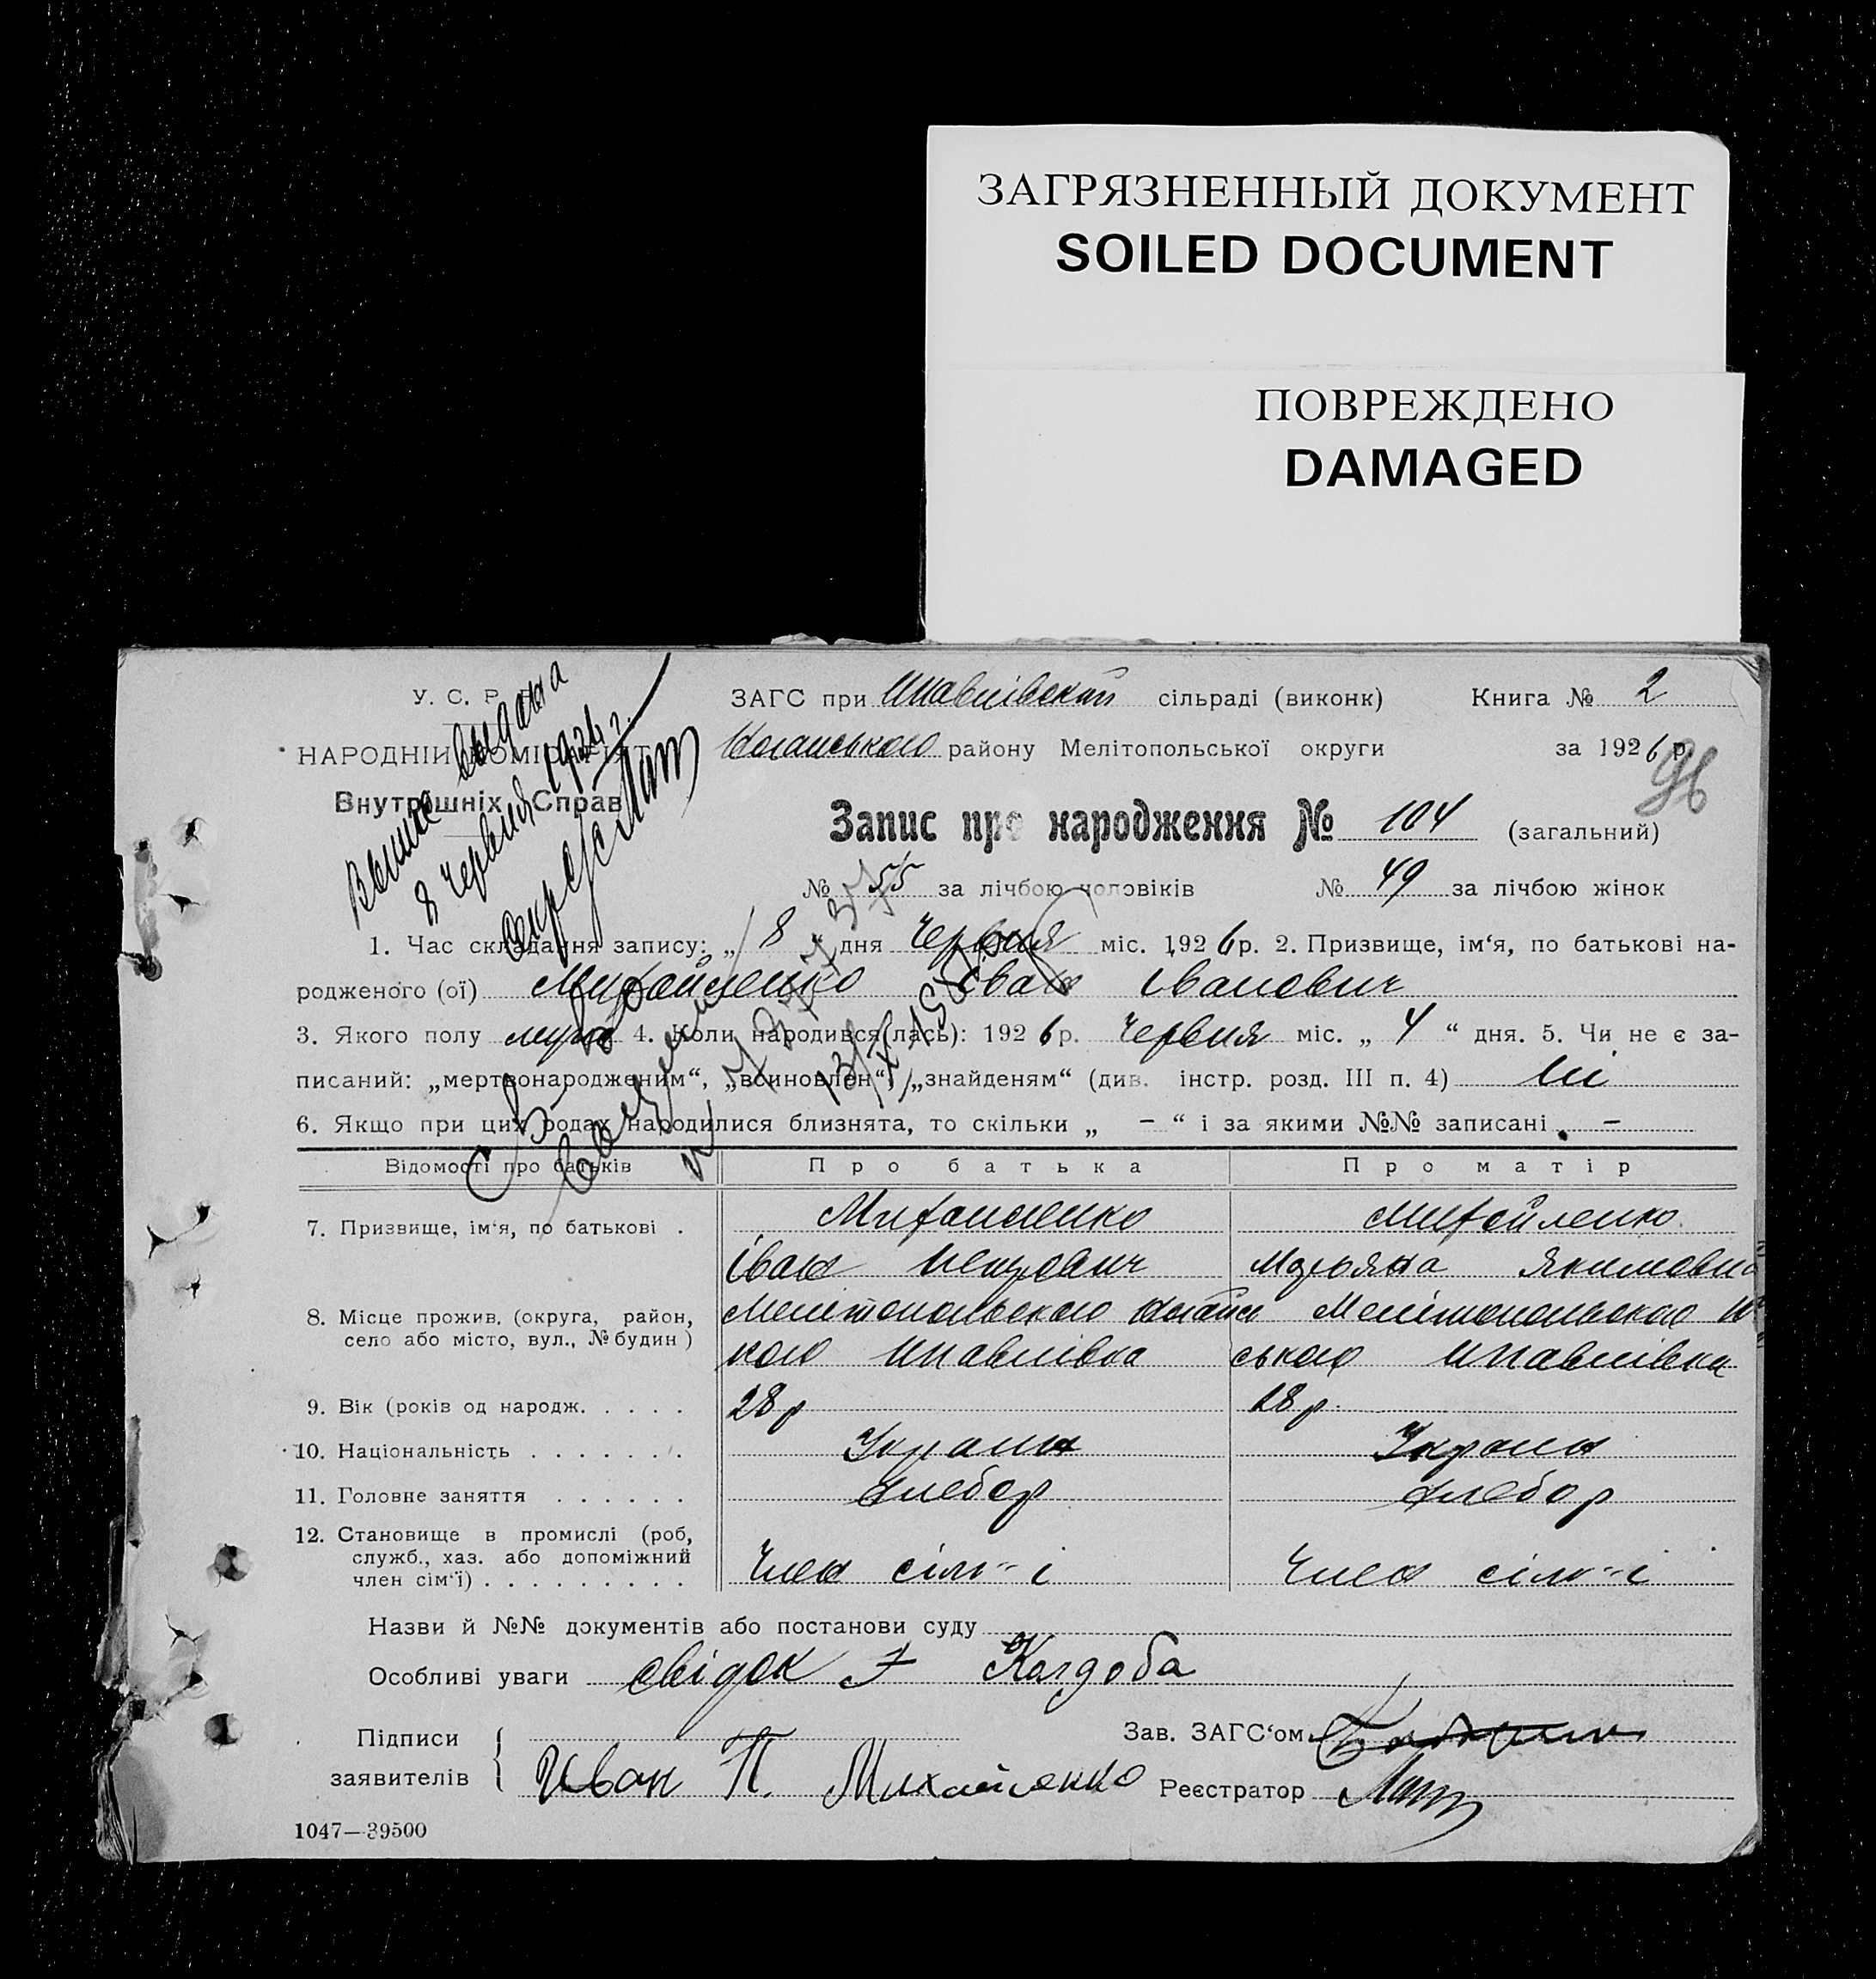 ЗАГРЯЗНЕННЫЙ ДОКУМЕНТ
SOILED DOCUMENT
ПОВРЕЖДЕНО
DAMAGED
У. С. Р. Р.
ЗАГС при сільраді (виконк) Книга № 2
НАРОДНІЙ КОМІСАРІЯТ
району Мелітопольської округи за 1926 р.
96
Внутрішніх Справ
выдана
8 червня
Запис про народження № 104 (загальний)
№ 55 за лічбою чоловіків № 49 за лічбою жінок
1. Час складання запису: „ 8 “ дня Червня міс. 1926 р. 2. Призвище, ім‘я, по батькові на-
родженого (ої) Михайленко Іван Іванович
3. Якого полу муж 4. Коли народився(лась): 1926 р. Червня міс. „ 4 “ дня. 5. Чи не є за-
писаний: „мертвонародженим“, „всиновлен“, „знайденям“ (див. інстр. розд. III п. 4) Ні
6. Якщо при цих родах народилися близнята, то скільки „ – “ і за якими №№ записані –
Відомості про батьків Про батька Про матір
7. Призвище, ім‘я, по батькові . Михайленко Михайленко
Іван Петрович Марьяна Якимовна
8. Місце прожив. (округа, район, Мелітопольского Мелітопольского
село або місто, вул., № будин )
9. Вік (років од народж. . . . . 28 р 28 р.
10. Національність . . . . . . . Украин Украин
11. Головне заняття . . . . . . хлебор хлебор
12. Становище в промислі (роб,
служб., хаз. або допоміжний
член сім‘ї) . . . . . . . . . Член сім"і Член сім"і
Назви й №№ документів або постанови суду
Особливі уваги свідок Калдоба
Підписи Зав. ЗАГС‘ом
заявителів Иван П. Михайленко Реєстратор
1047—39500